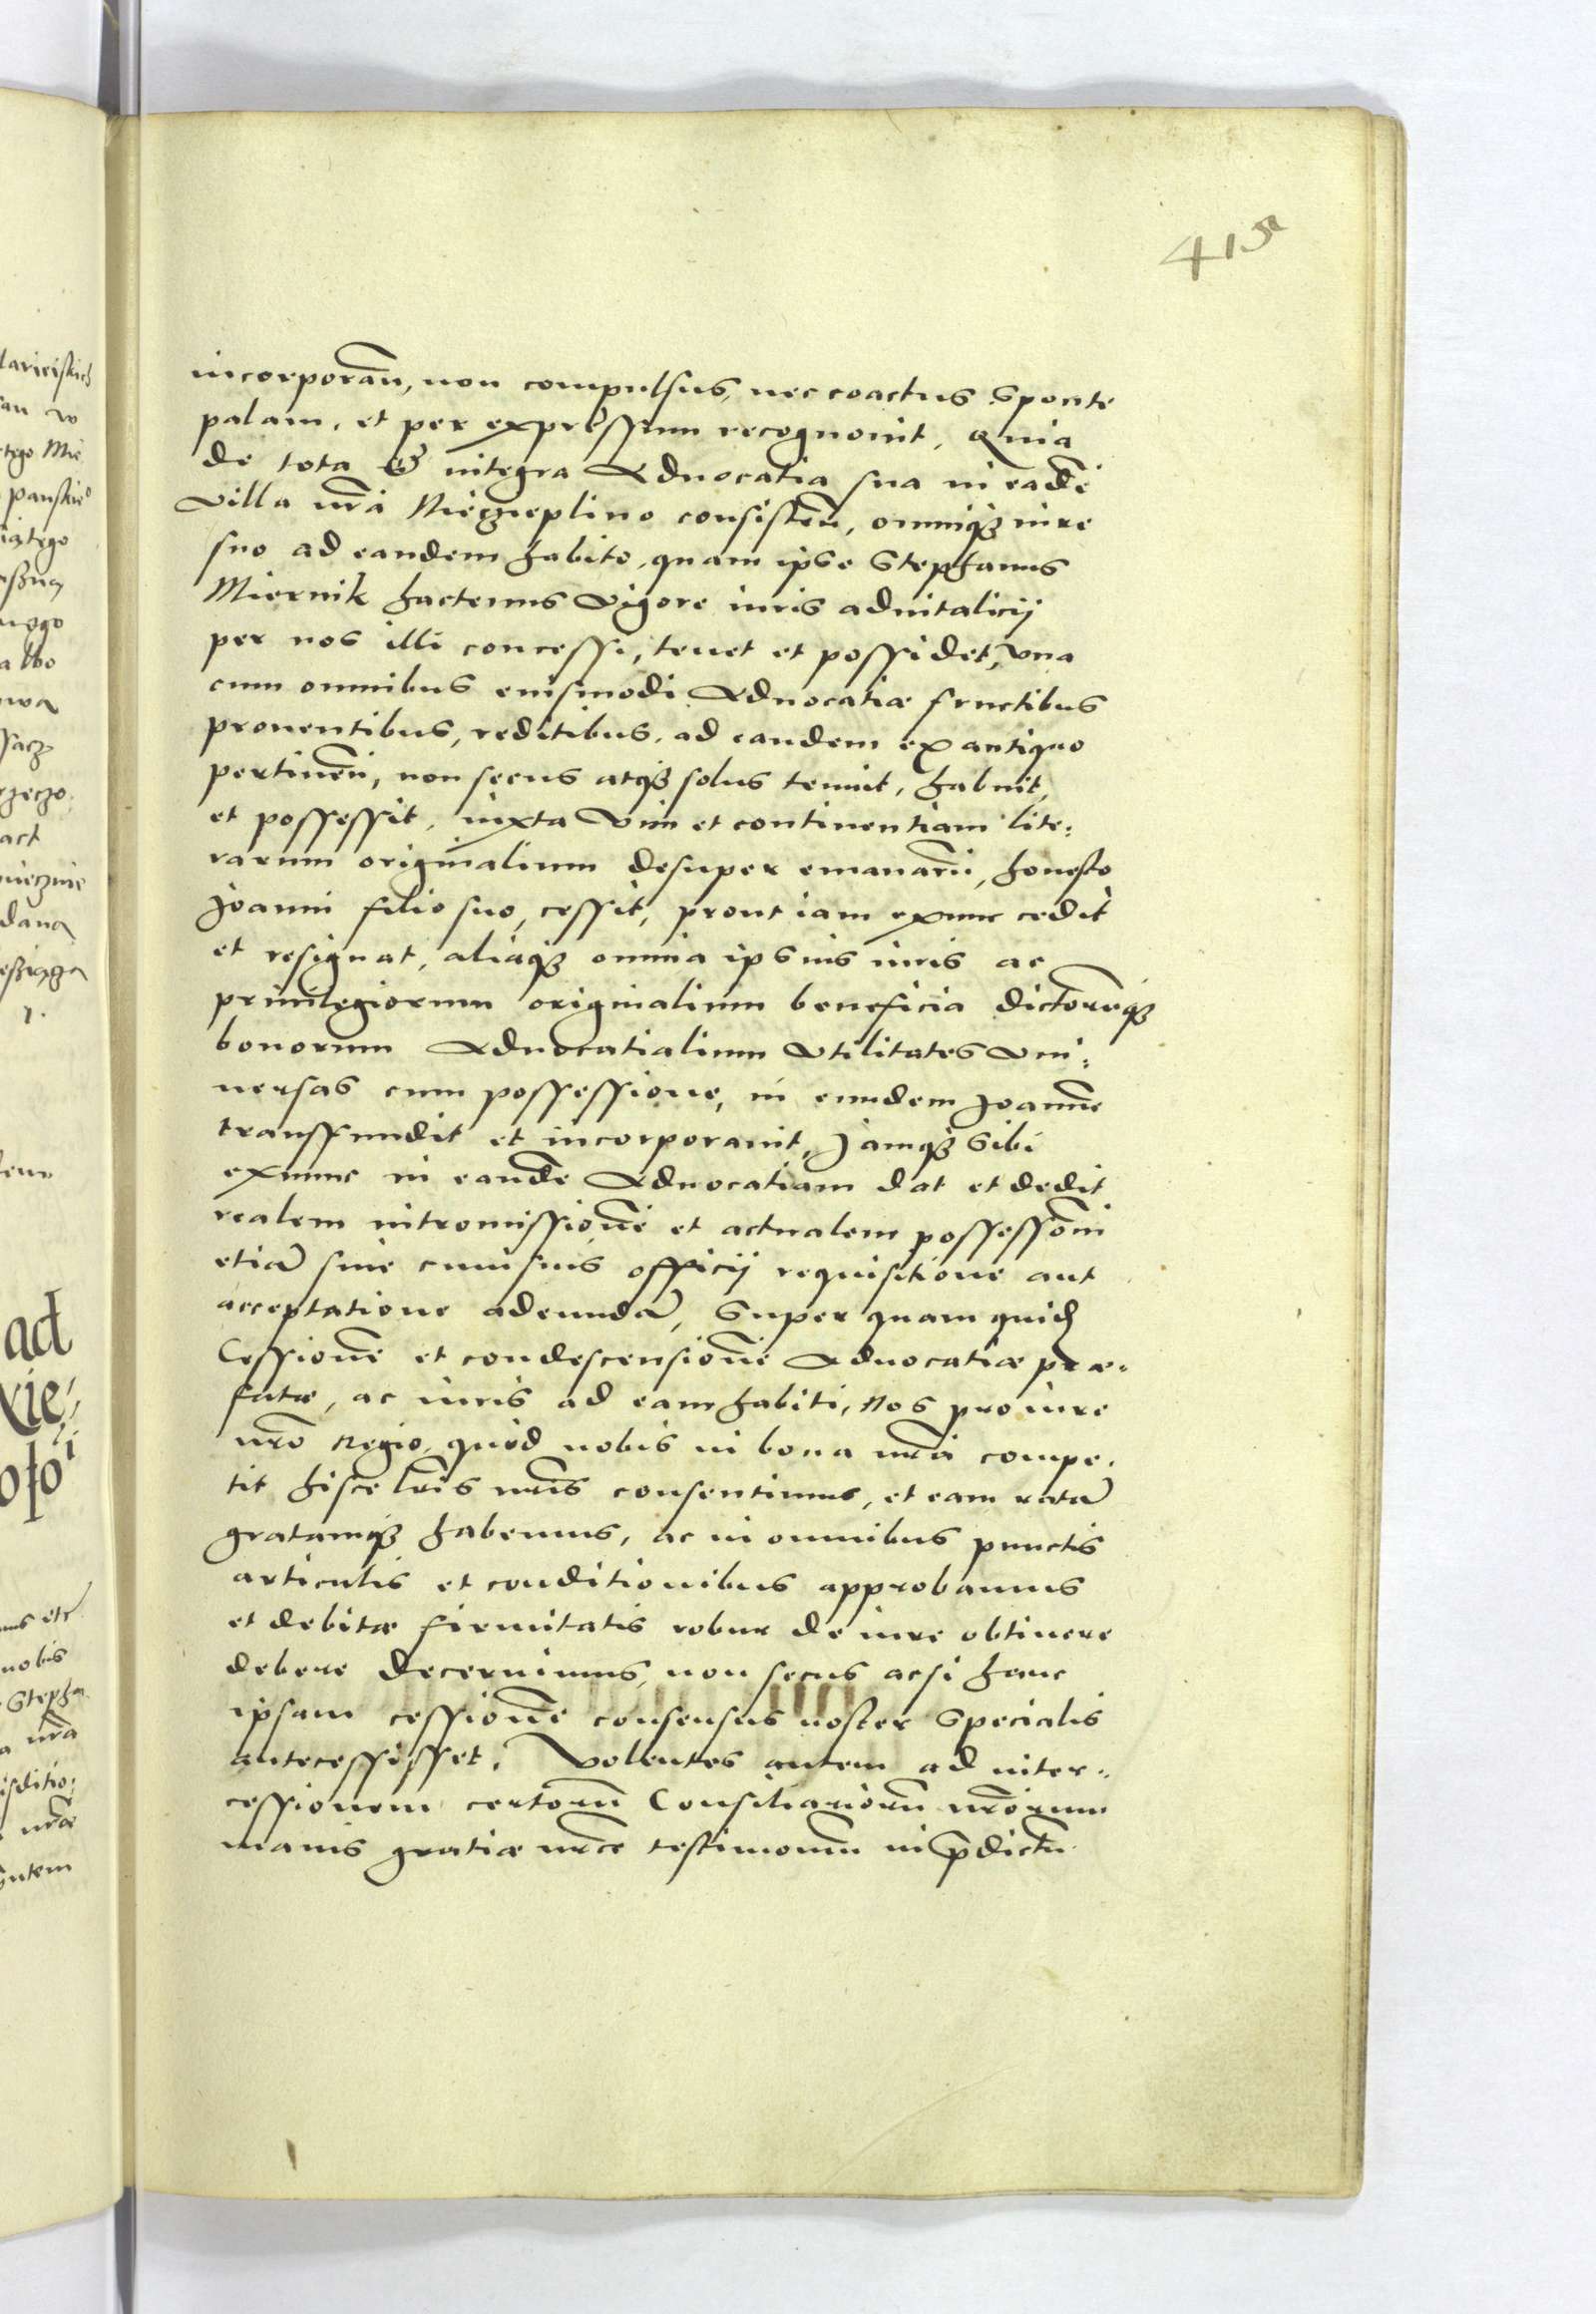 415
incorporan̄, non compulsus, nec coactus sponte
palam, et per expressum recognouit, Quia
de tota & integra Aduocatia sua in eadē
Villa nr̄a Niezieplino consisten̄, omniqȝ iure
suo ad eandem habito, quam ipse Stephanus
Miernik hactenus Vigore iuris aduitalicij
per nos illi concessi, tenet et possidet, vna
cum omnibus eiusmodi Aduocatiæ fructibus
prouentibus, reditibus, ad eandem ex antiquo
pertinen̄, non secus atqȝ solus tenuit, habuit,
et possessit, iuxta Vim et continentiam lite:
rarum originalium desuper emanarū, honesto
Joanni filio suo, cessit, prout iam exnunc cedit
et resignat, aliaqȝ omnia ipsius iuris ac
priuilegiorum originalium beneficia dictorūqȝ
bonorum Aduocatialium Vtilitates Vni:
uersas cum possessione, in eundem Joannē
transfundit et incorporauit, Jamqȝ sibi
exnunc in eandē Aduocatiam dat et dedit
realem intromissionē et actualem possessionē
etiā sine cuiusuis officij requisitione aut
acceptatione adeundā, Super quam quidē
Cessionē et condescensionē Aduocatiæ præ-
fatæ, ac iuris ad eam habiti, Nos pro iure
nr̄o Regio, quod nobis in bona nr̄a compe-
tit hisce lr̄is nr̄is consentimus, et eam ratā
gratamqȝ habemus, ac in omnibus punctis
articulis et conditionibus approbamus
et debitæ firmitatis robur de iure obtinere
debere decernimus, non secus acsi hanc
ipsam cessionē consensus noster specialis
antecessisset. Volentes autem ad inter-
cessionem certorū Consiliariorū nr̄orum
maius gratiæ nr̄æ testimoniū in p̄dictū